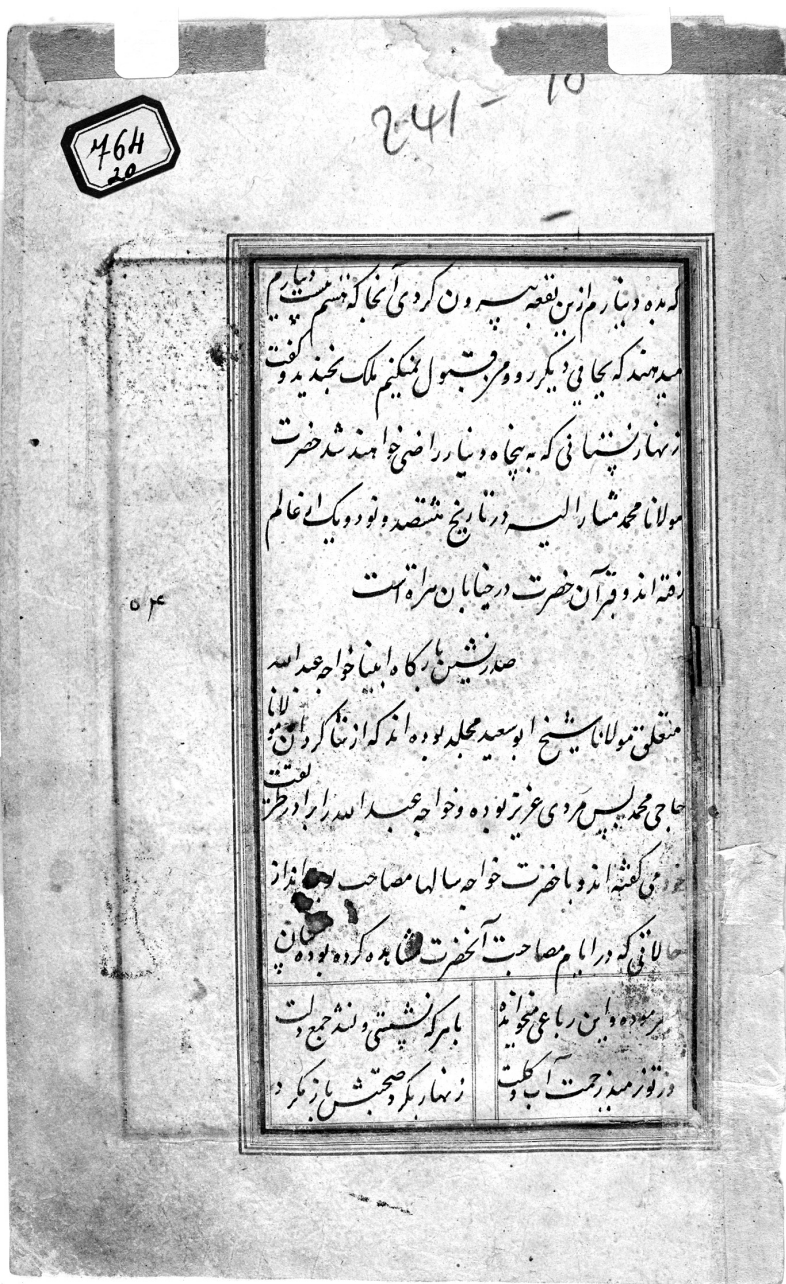 241 - 10
764
20
که بده دینارم ازین بقعه بیرون کردی آنجا که هستم بیست دینارم
میدهند که بجایی دیگر رو و من قبول نمیکنم ملک بخندید و گفت
زنهار نستانی که به پنجاه دینار راضی خواهند شد حضرت
مولانا محمد مشار الیه در تاریخ هشتصد و نود و یک از عالم
رفته اند و قبر آن حضرت در خیابان هراة است
صدر نشین بارگاه خواجه عبد الله
متعلق مولانا شیخ ابو سعید مجلد بوده اند که از شاگردان مولانا
حاجی محمد پس مردی عزیز بوده و خواجه عبد الله را برادر طریقت
خود می گفته اند و با حضرت خواجه سالها مصاحب بوده اند از
حالاتی که در ایام مصاحبت آنحضرت مشاهده کرده بوده
فرموده و این رباعی میخوانده
با هر که نشستی و نشد جمع دلت
وز تو نرمید زحمت آب و گلت
زنهار بگرد صحبتش باز مگرد
۵۴